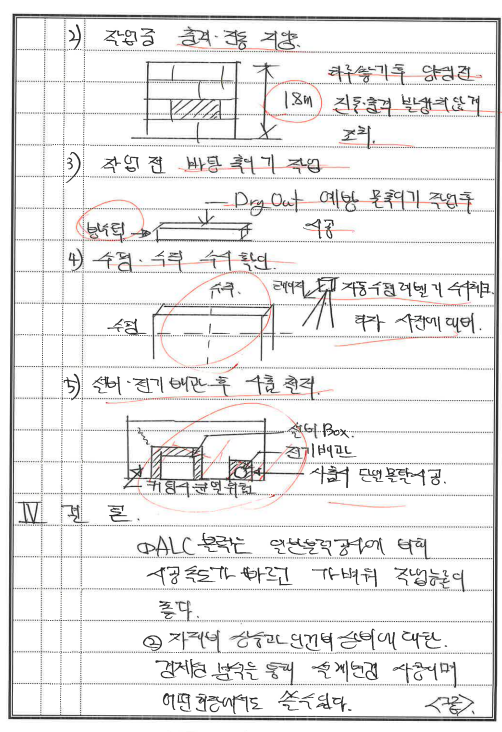 2) 작업중 충격·진동 지양.
하루쌓기후 양생전
1.8m 진동·충격 발생하지않게
조치.
3) 작업 전 바탕 축이기 작업
Dry Out 예방 물축이기 작업후
시공
4) 수평·수직 수시 확인.
수직
레이저 자동수평레벨기 수시체크.
수평 하자 사전에 대비.
5) 설비·전기 배관 후 사춤 철저.
설비 Box.
전기배관
사춤시 단면몰탈시공.
균열위험
IV 결론.
① ALC 블럭는 일반블럭공사에 비해
시공속도가 빠르고 가벼워 작업능률이
좋다.
② 자재비 상승과 인건비 상승에 대한.
경제성 분석을 통해 설계변경 사용하며
어떤현장에서도 쓸수있다. <끝>.